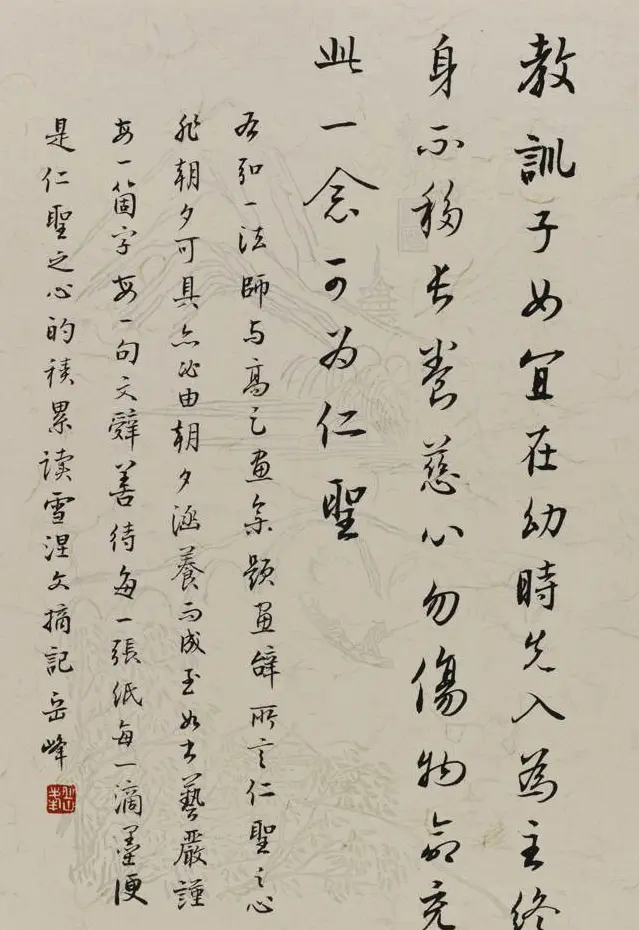 教訓子女宜在幼時先入為主終
身不移长養慈心勿傷物命充
此一念可为仁聖
右弘一法師与畫集題畫辭所言仁聖之心
非朝夕可具亦必由朝夕涵養而成至如書藝嚴謹
每一箇字每一句文辭善待每一張紙每一滴墨便
是仁聖之心的積累读雪涅文摘記岳峰